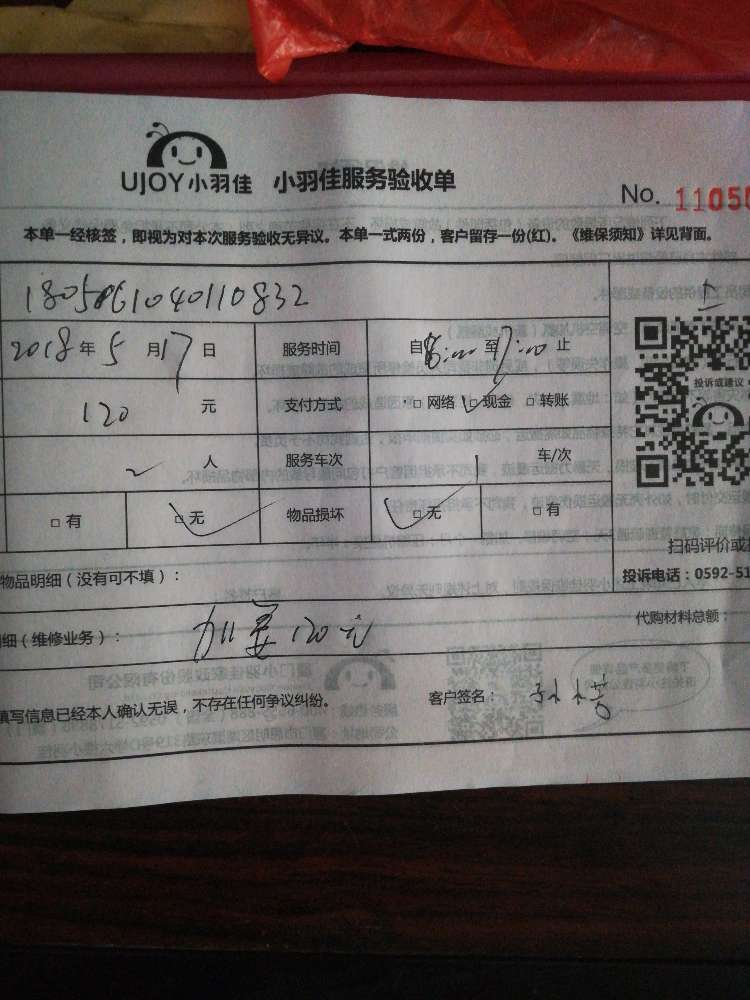 UJOY小羽佳 小羽佳服务验收单
No. 11050
本单一经核签，即视为对本次服务验收无异议。本单一式两份，客户留存一份(红)。《维保须知》详见背面。
2018年5月17日 服务时间 自 至 止
120 元 支付方式 □网络 □现金 □转账
2 人 服务车次 1 车/次
□有 □无 物品损坏 □无 □有
投诉或建议
扫码评价或
物品明细（没有可不填）：
投诉电话：0592-51
代购材料总额：
细（维修业务）： 120元
填写信息已经本人确认无误，不存在任何争议纠纷。
客户签名：